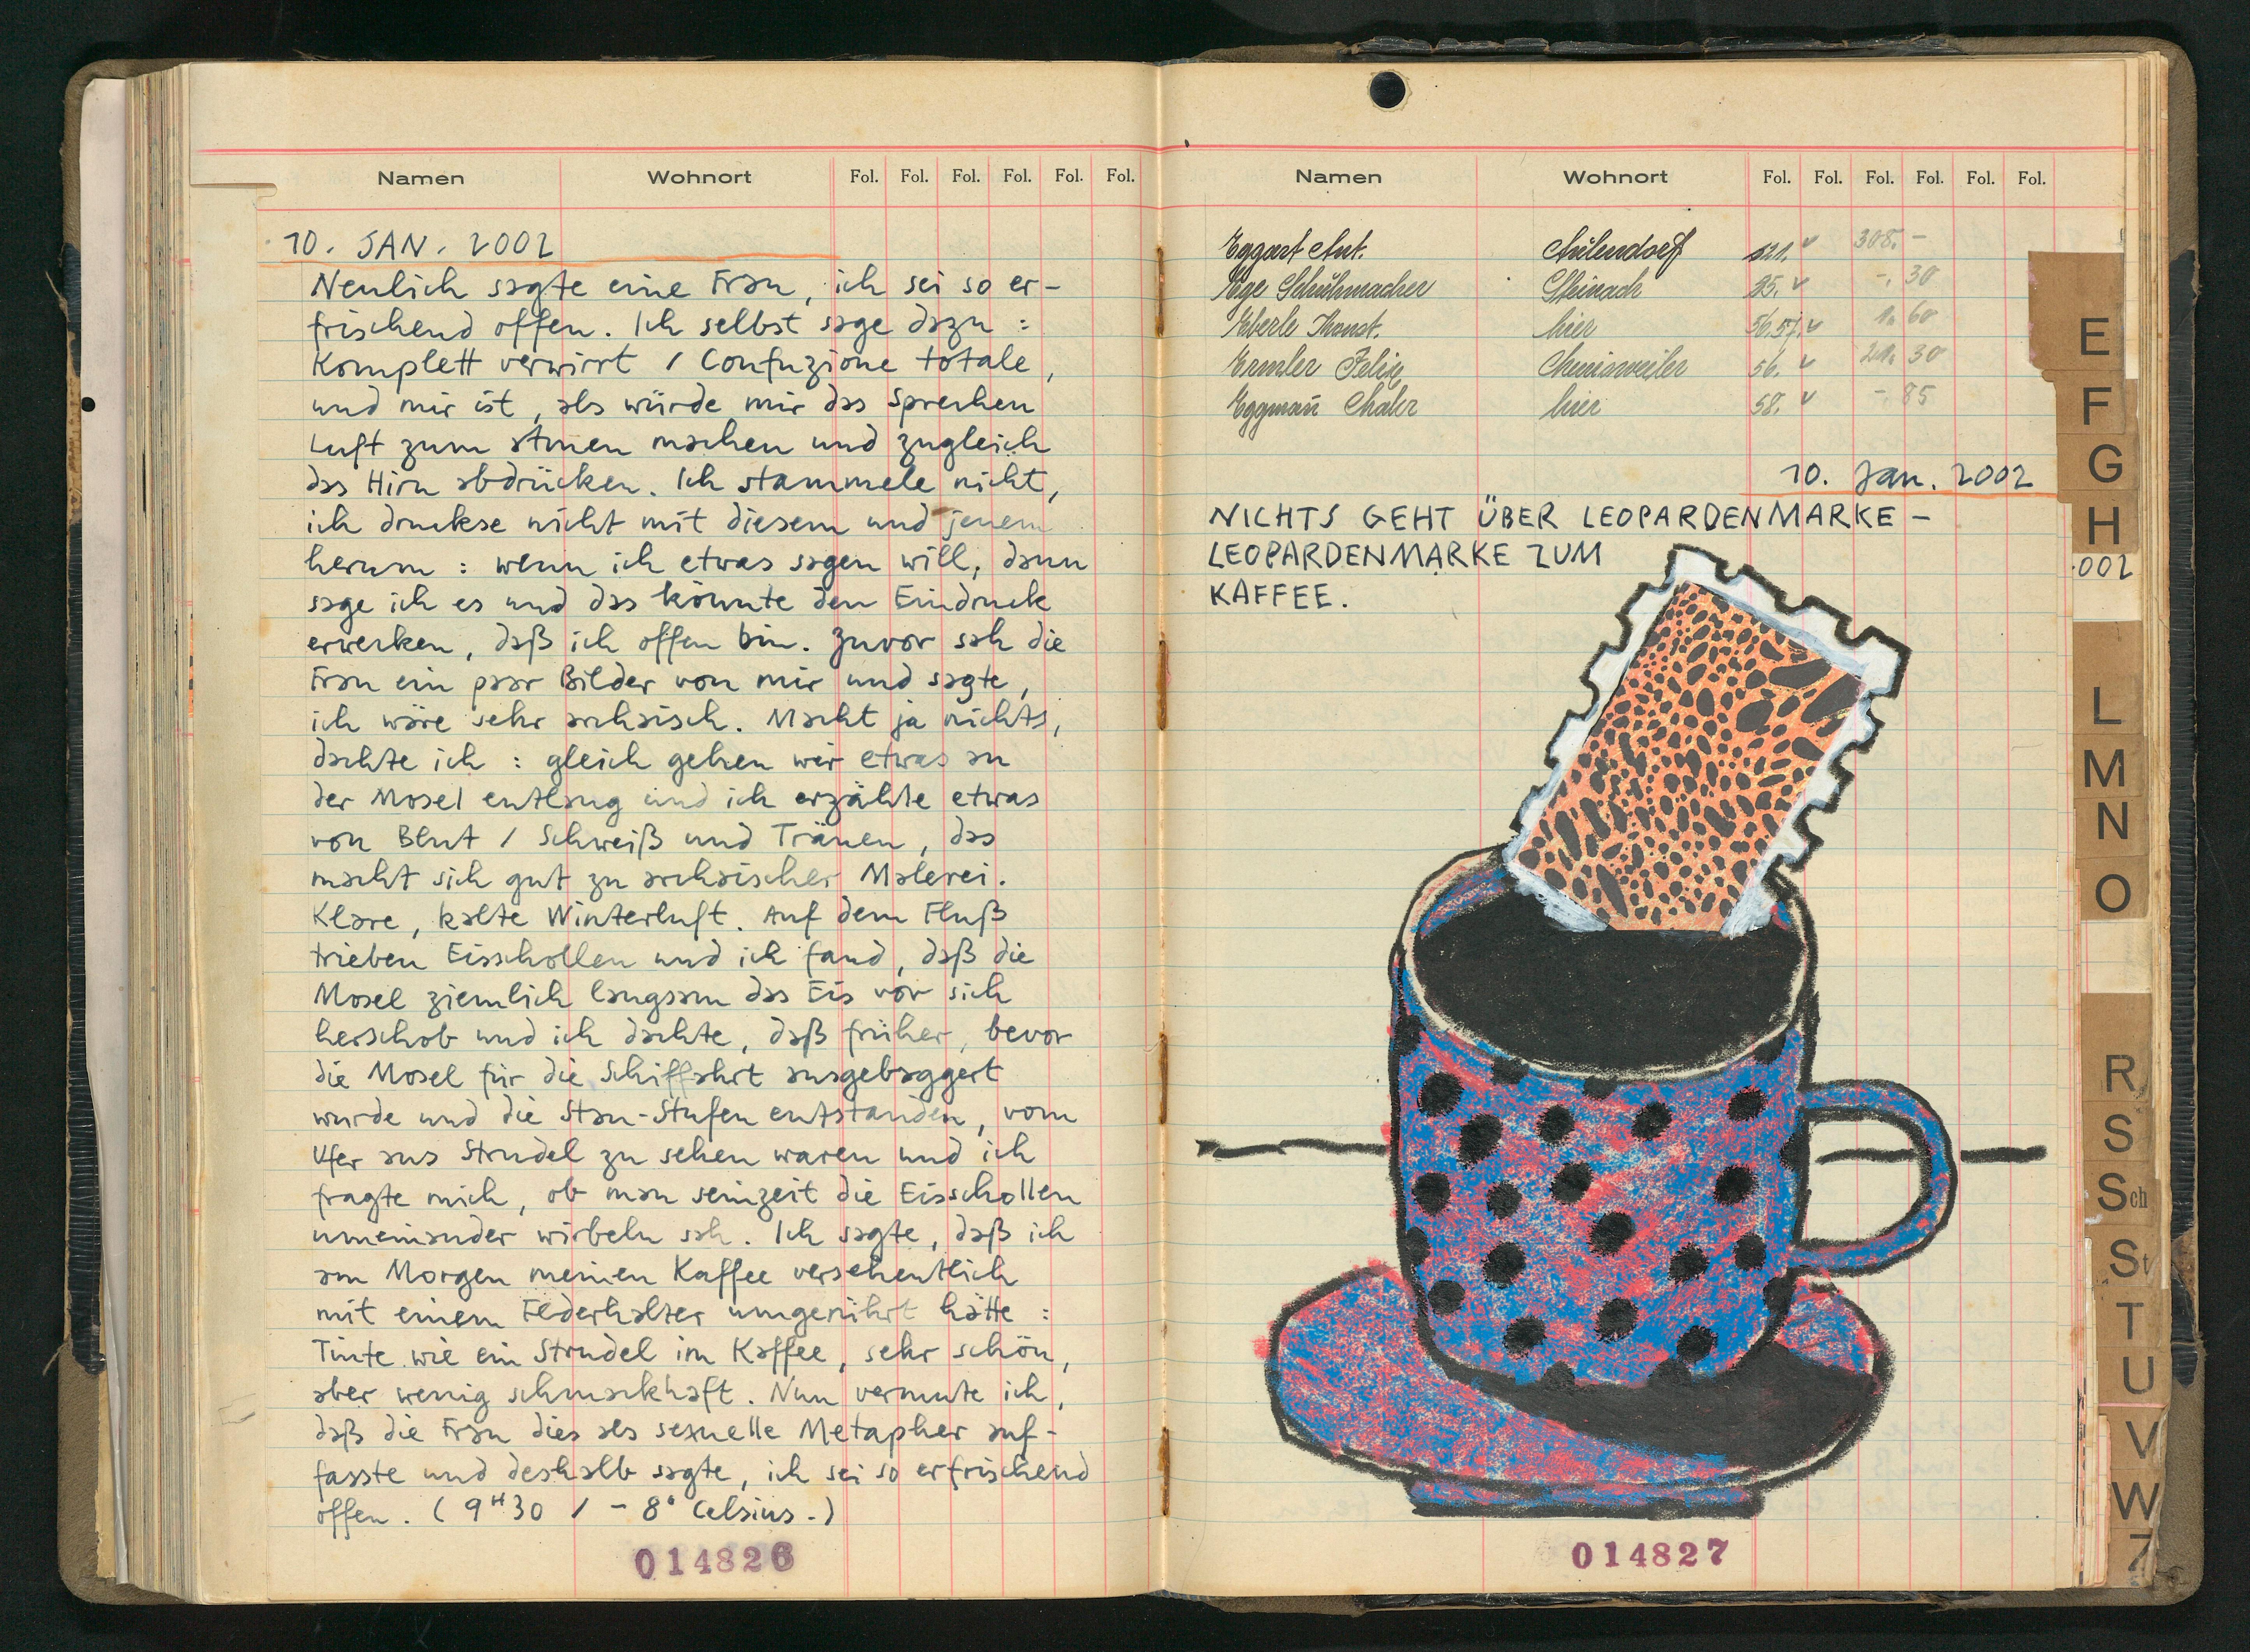 Namen Wohnort Fol. Fol. Fol. Fol. Fol. Fol.
10. JAN. 2002
Neulich sagte eine Frau, ich sei so er-
frischend offen. Ich selbst sage dazu :
Komplett verwirrt / Confuzione totale,
und mir ist, als würde mir das Sprechen
Luft zum atmen machen und zugleich
das Hirn abdrücken. Ich stammele nicht,
ich druckse nicht mit diesem und jenem
herum : wenn ich etwas sagen will, dann
sage ich es und das könnte den Eindruck
erwecken, daß ich offen bin. Zuvor sah die
Frau ein paar Bilder von mir und sagte,
ich wäre sehr archaisch. Macht ja nichts,
dachte ich : gleich gehen wir etwas an
der Mosel entlang und ich erzählte etwas
von Blut / Schweiß und Tränen, das
macht sich gut zu archaischer Malerei.
Klare, kalte Winterluft. Auf dem Fluß
trieben Eisschollen und ich fand, daß die
Mosel ziemlich langsam das Eis vor sich
herschob und ich dachte, daß früher, bevor
die Mosel für die Schiffahrt ausgebaggert
wurde und die Stau-Stufen entstanden, vom
Ufer aus Strudel zu sehen waren und ich
fragte mich, ob man seinzeit die Eisschollen
umeinander wirbeln sah. Ich sagte, daß ich
am Morgen meinen Kaffee versehentlich
mit einem Federhalter umgerührt hätte :
Tinte wie ein Strudel im Kaffee, sehr schön,
aber wenig schmackhaft. Nun vermute ich,
daß die Frau dies als sexuelle Metapher auf-
fasste und deshalb sagte, ich sei so erfrischend
offen. ( 9H30 / - 8° Celsius.)
014826
Namen Wohnort Fol. Fol. Fol. Fol. Fol. Fol.
Eggart Ant. Aulendorf 521. 308.-
Ege Schuhmacher Steinach 25. -.30
Eberle Konst. hier 56.57. 1.60
Ermler Felix 56. 30
hier 58. -.85
10. Jan. 2002
NICHTS GEHT ÜBER LEOPARDENMARKE -
LEOPARDENMARKE ZUM
KAFFEE.
014827
E
F
G
H
002
L
M
N
O
R
S
Sch
St
T
U
V
W
Z